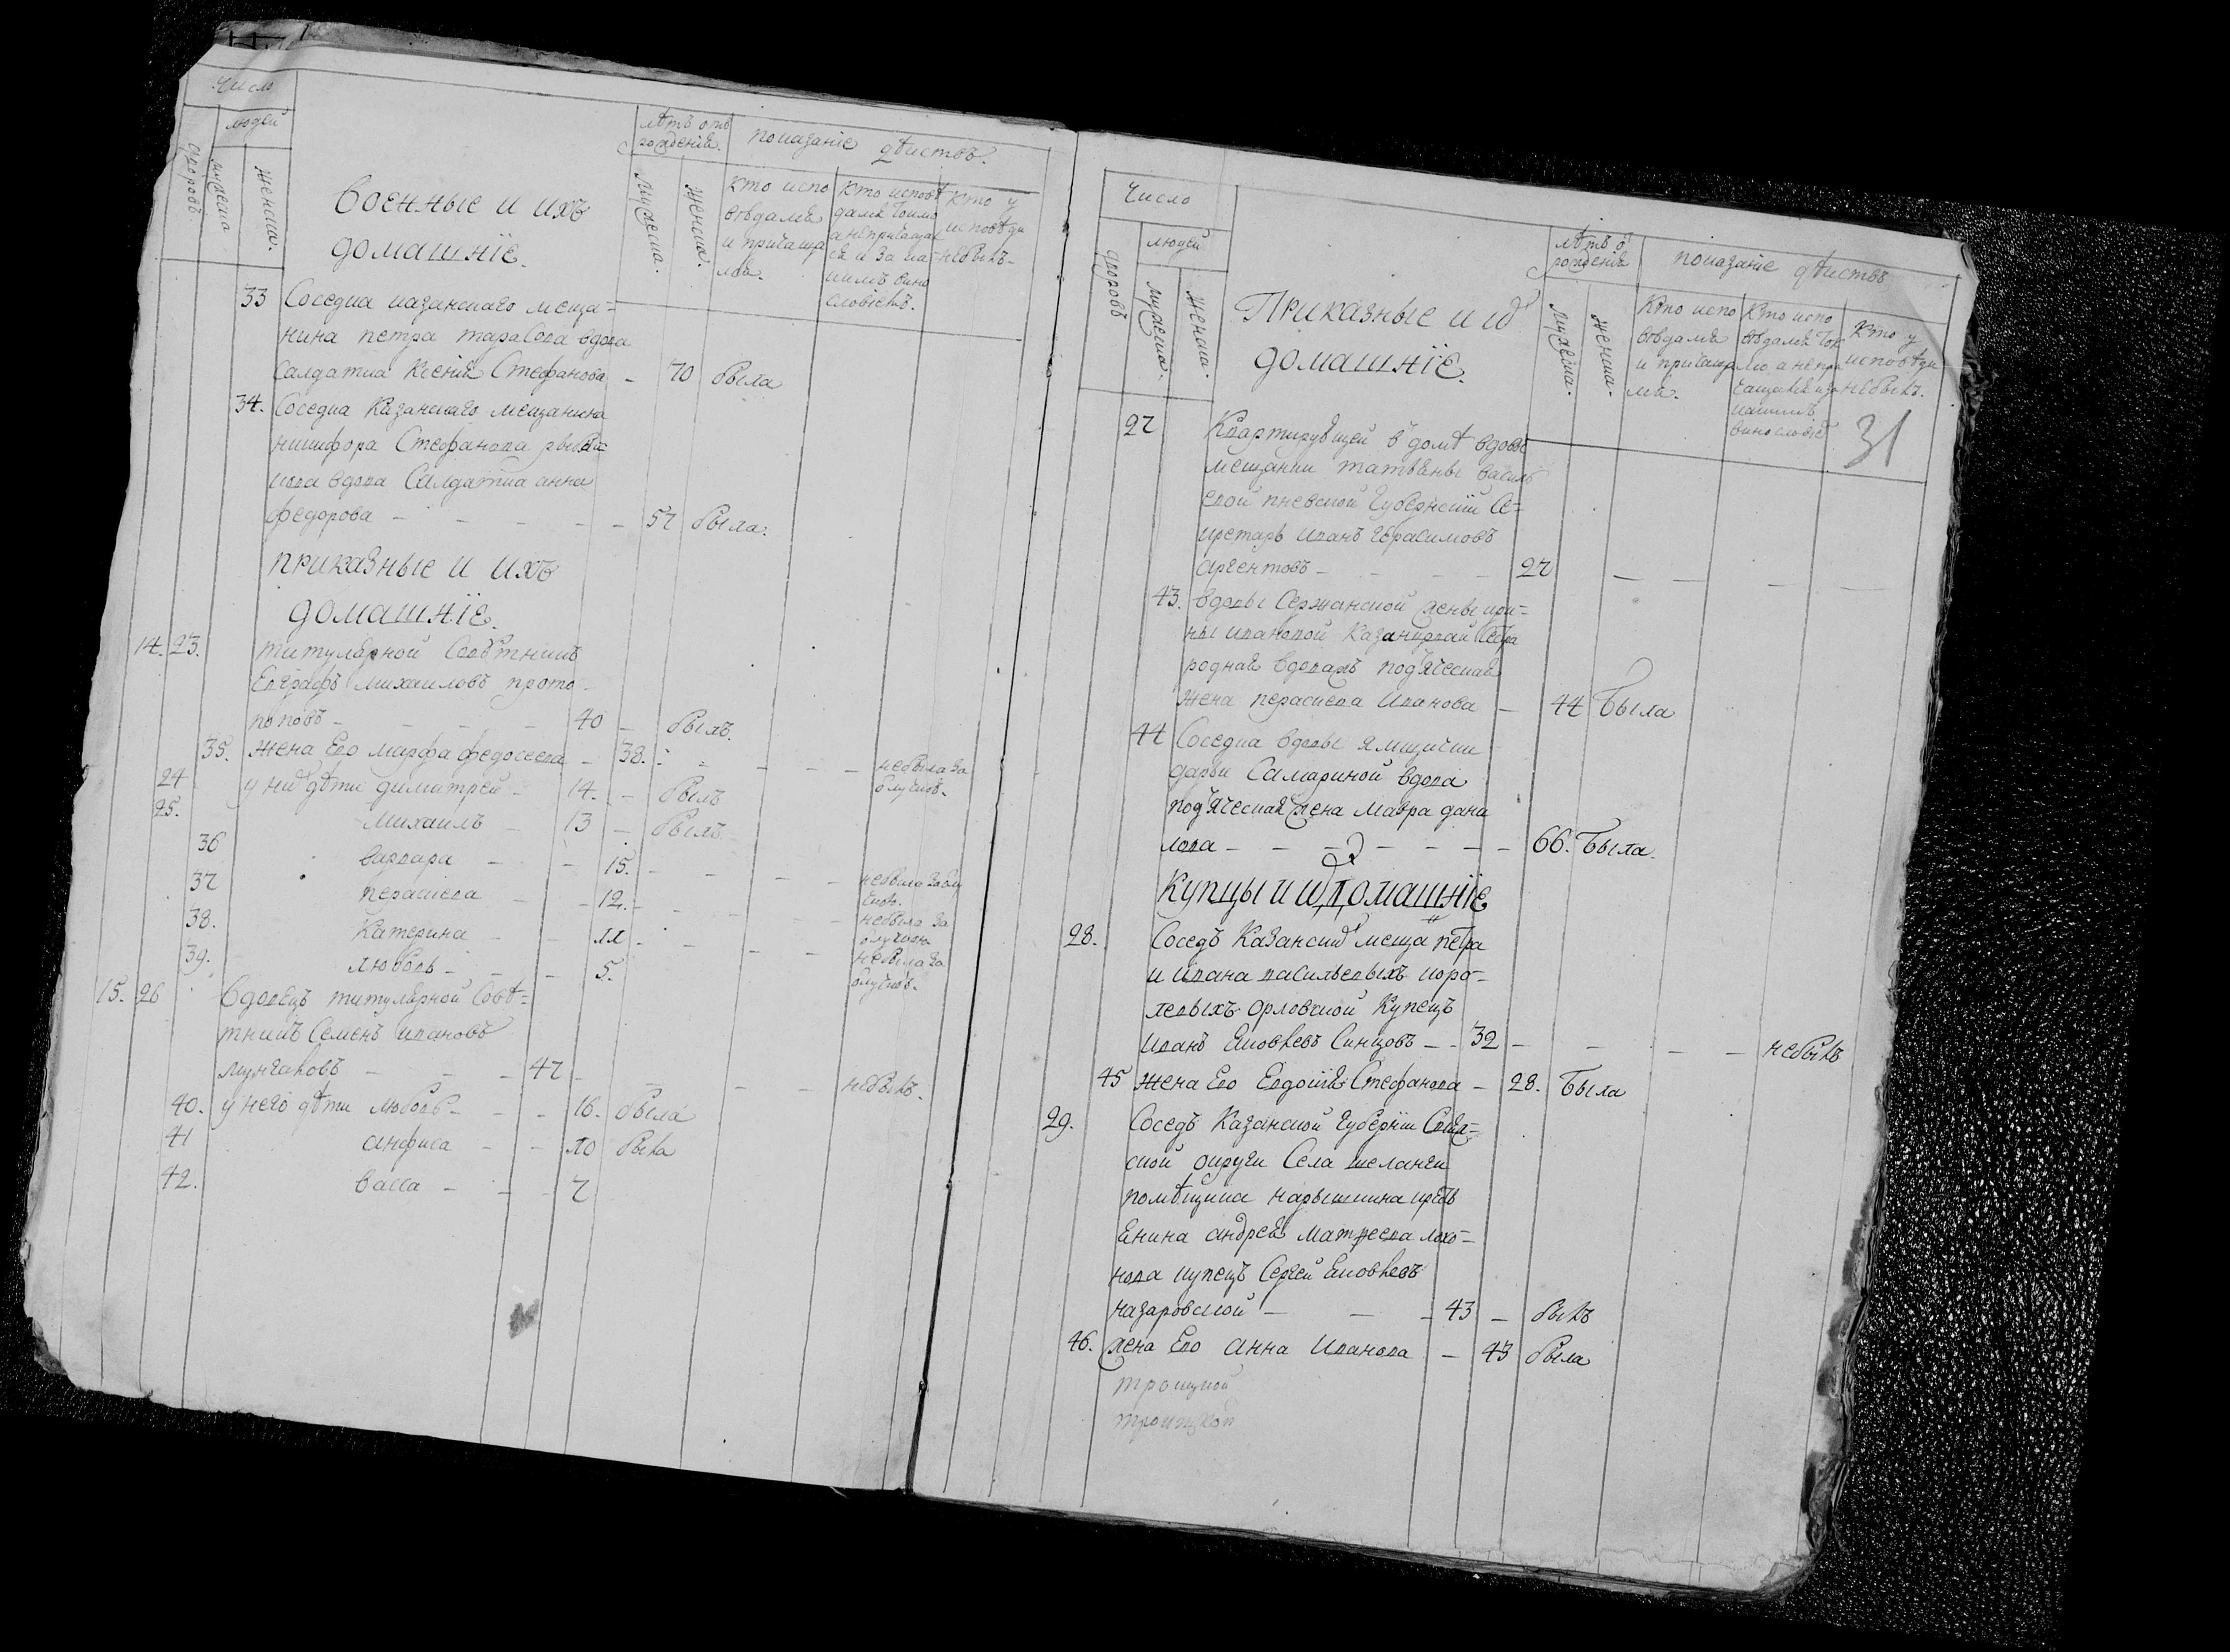 Число
людей
дворовъ
мужеска
женска.
военные и ихъ
домашнїе.
лѣтъ отъ
рожденiя.
мужеска.
женска.
показанiе дѣйствъ.
кто испо
вѣдался
и прича
лся.
кто исповѣ
дался токмо
а непричащал
ся и за ка-
кимъ вино
словiемъ.
кто у
исповѣди
небылъ-
33 Соседка казанскаго меща=
нина петра тарасова вдова
салдатка Ксенiя Стефанова - 70 была
34. Соседка Казанскаго мещанина
никифора Стефанова
кова вдова Салдатка анна
федорова - - - - - 57 была.
приказные и ихъ
домашнїе.
14. 23. титулярной Совѣтникъ
Евграфъ Михаиловъ прото-
поповъ - - - - 40 - былъ.
35. жена Ево марфа федосеева - 38. - - - - небыла за
отлучкою.
24 у них дѣти димитрей - 14. - былъ
25. михаилъ - 13 - былъ
36 варвара - - 15. - - - - небыла за отлу
чкою.
37 параскева - - 12. - - - - небыла за
отлучкою
38. Катерина - - 11 - - - - небыла за
отлучкою.
39. любовь - - - 5.
15. 26 вдовецъ титулярной Совѣ-
тникъ Семенъ ивановъ
- - - 47 - - - - небылъ.
40. у него дѣти любовь - - - 16. была
41 анфиса - - 10 была
42. васса - - - 7
Число
людей
дворовъ
мужеска.
женска.
Приказные и их
домашнїе.
лѣтъ о
рожденiя
мужеска.
женска.
показанiе дѣйствъ
Кто испо
вѣдался
и прича
лся.
Кто испо
вѣдался ток
мо, а непри
чащался и за
какимъ
винословiе
Кто у
исповѣди
небылъ.
31
27 Квартирующей в домѣ вдовы
мещанки татьяны василь
евой губернскiй Се-
кретарь иванъ герасимовъ
аргентовъ - - - - 27 - - - -
43. вдовы Сержанской жены ири=
ны ивановой
родная вдовая подъяческая
жена параскева иванова - 44 была
44 Соседка вдовы ямщички
дарьи Самариной вдова
подъяческая жена мавра дани
лова - - - - - - - 66. была.
Купцы и их домашнїе
28. Соседъ Казанских меща петра
и ивана васильевыхъ коро-
левыхъ орловской Купецъ
иванъ Яковлевъ Синцовъ - - 32 - - - - небылъ
45 жена Ево Евдокiя Стефанова - 28. была
29. Соседъ Казанской губернiи Свiя-
ской округи Села шеланги
помѣщика нарышкина кресть
янина андрея матвеева
нова купецъ Сергей Яковлевъ
назаровской - - - 43 - былъ
46. жена Ево анна иванова - 43 была
троицкой
троицкой